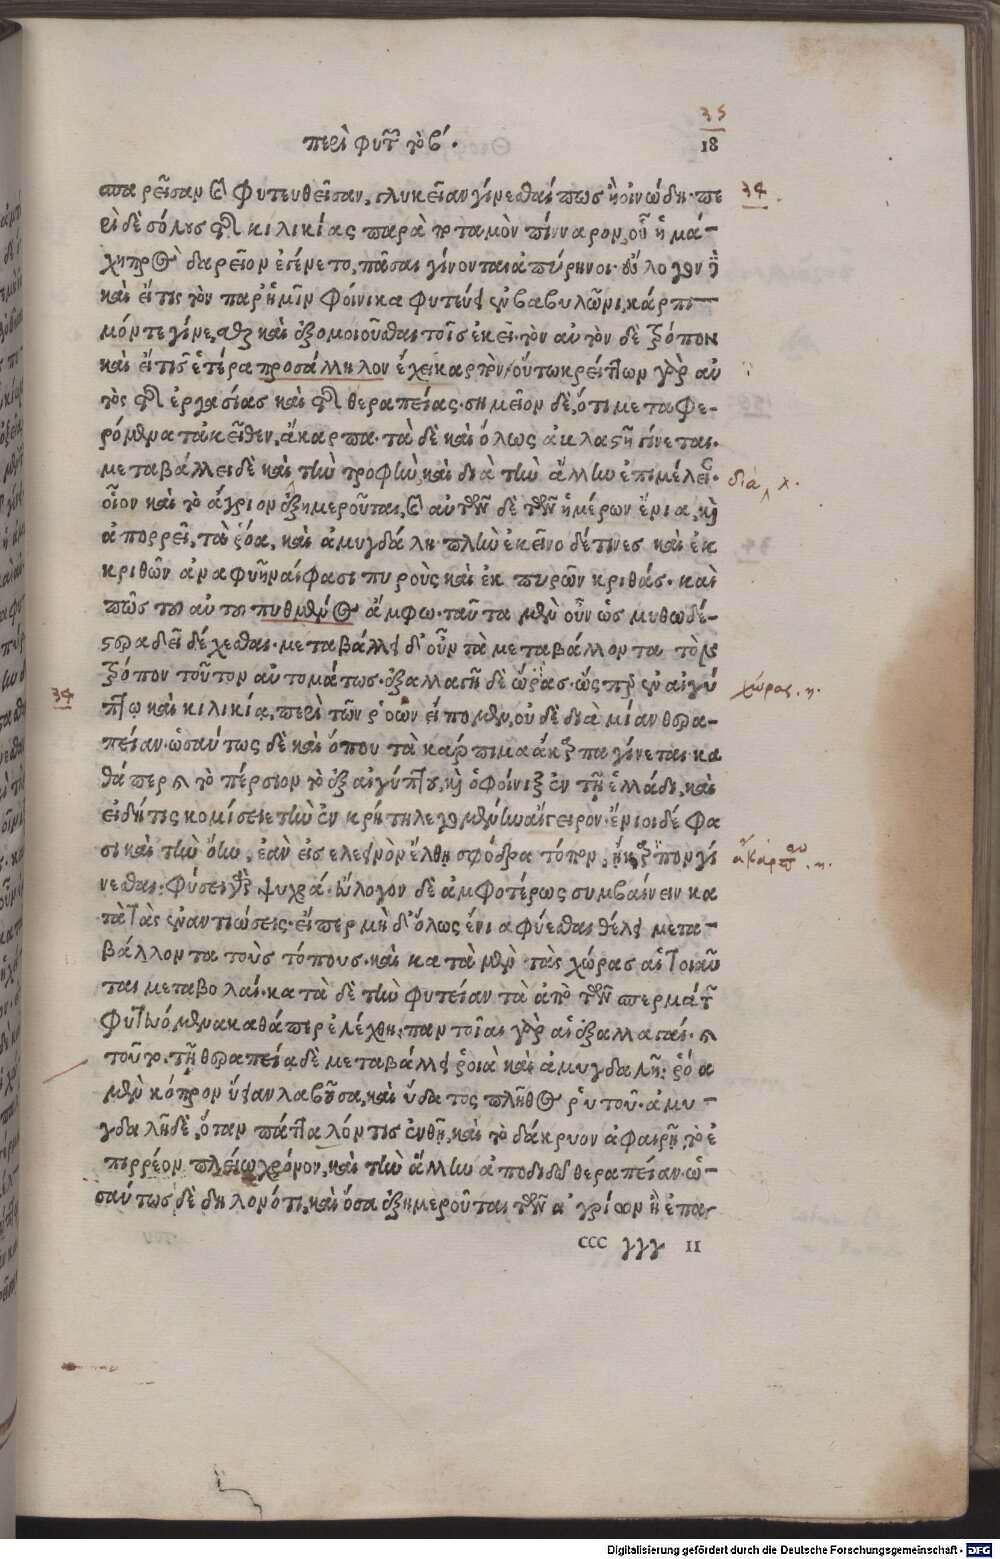 35
περὶ φυτῶν τὸ β´.
18
σπαρεῖσαν καὶ φυτευθεῖσαν, γλυκεῖαν γίνεσθαί πως ἢ οἰνώδη· πε 34
ρὶ δὲ σόλους τῆς κιλικίας παρὰ ποταμὸν πίνναρον, οὗ ἡ μά-
χη πρὸς δαρεῖον ἐγένετο, πᾶσαι γίνονται ἀπύρηνοι· εὔλογον δὲ
καὶ εἴ τις τὸν παρ' ἡμῖν φοίνικα φυτεύει ἐν βαβυλῶνι, κάρπι-
μόν τε γίνεσθαι καὶ ἐξομοιοῦσθαι τοῖς ἐκεῖ· τὸν αὐτὸν δὲ τρόπον
καὶ εἴ τις ἑτέρα προσάλληλον ἔχει καρπὸν, οὕτω κρείττων γὰρ αὐ
τὸς τῆς ἐργασίας καὶ τῆς θεραπείας· σημεῖον δὲ, ὅτι μεταφε-
ρόμενα τἀκεῖθεν, ἄκαρπα· τὰ δὲ καὶ ὅλως ἀβλαστῆ γίνεται.
μεταβάλλει δὲ καὶ τὴν τροφὴν, καὶ διὰ τὴν ἄλλην ἐπιμέλειαν· διὰ
οἷον καὶ τὸ ἄγριον ἐξημεροῦται, καὶ αὐτῶν δὲ τῶν ἡμέρων ἔνια, καὶ
ἀπορρεῖ, τὰ ῥόα, καὶ ἀμυγδάλη· πλὴν ἐκεῖνο δέ τινες καὶ ἐκ
κριθῶν ἀναφυῆναί φασι πυροὺς καὶ ἐκ πυρῶν κριθάς· καὶ
πῶς τοῦ αὐτοῦ πυθμένος ἄμφω· ταῦτα μὲν οὖν ὡς μυθωδέ-
στερα δεῖ δέχεσθαι· μεταβάλλει δ' οὖν τὰ μεταβάλλοντα τὸν
τρόπον τοῦτον αὐτομάτως· ἐξαλλαγῆ δὲ ὥρας· ὥσπερ ἐν αἰγύ χώρας. η.
34 πτῳ καὶ κιλικία, περὶ τῶν ῥοῶν εἴπομεν, οὐδὲ διὰ μίαν θερα-
πείαν· ὡσαύτως δὲ καὶ ὅπου τὰ κάρπιμα ἄκαρπα γίνεται· κα
θάπερ τὸ πέρσιον τὸ ἐξ αἰγύπτου, καὶ ὁ φοίνιξ ἐν τῇ ἑλλάδι, καὶ
εἰ δή τις κομίσειε τὴν ἐν κρήτῃ λεγομένην αἴγειρον· ἔνιοι δέ φα
σι καὶ τὴν ὄην, ἐὰν εἰς ἐλεεινὸν ἔλθῃ σφόδρα τόπον, ἥκιστον γί
νεσθαι· φύσει γὰρ ψυχρά· εὔλογον δὲ ἀμφοτέρως συμβαίνειν κα
τὰ τὰς ἐναντιώσεις· εἴπερ μὴ δ' ὅλως ἔνια φύεσθαι θέλει μετα-
βάλλοντα τοὺς τόπους· καὶ κατὰ μὲν τὰς χώρας αἱ τοιαῦ
ται μεταβολαί· κατὰ δὲ τὴν φυτείαν τὰ ἀπὸ τῶν σπερμάτων
φυτευόμενα καθάπερ ἐλέχθη· παντοῖαι γὰρ αἱ ἐξαλλαγαί· καὶ
τούτων· τῇ θεραπείᾳ δὲ μεταβάλλει ῥοιὰ καὶ ἀμυγδαλῆ· ῥόα
μὲν κόπρον ὑείαν λαβοῦσα, καὶ ὕδατος πλῆθος ῥυτοῦ· ἀμυ-
γδαλῆ δὲ, ὅταν πάτταλόν τις ἐνθῇ, καὶ τὸ δάκρυον ἀφαιρῇ, τὸ ἐ
πιρρέον πλείω χρόνον, καὶ τὴν ἄλλην ἀποδιδῷ θεραπείαν· ὡ-
σαύτως δὲ δηλονότι, καὶ ὅσα ἐξημεροῦται τῶν ἀγρίων ἢ ἐπα-
CCC γγγ II
Digitalisierung gefördert durch die Deutsche Forschungsgemeinschaft - DFG